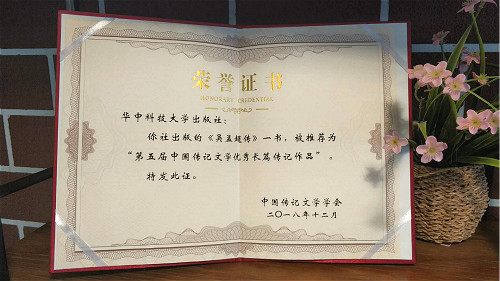 荣誉证书
HONORARY CREDENTIAL
华中科技大学出版社：
你社出版的《吴孟超传》一书，被推荐为
“第五届中国传记文学优秀长篇传记作品”。
特发此证。
中国传记文学学会
二〇一八年十二月